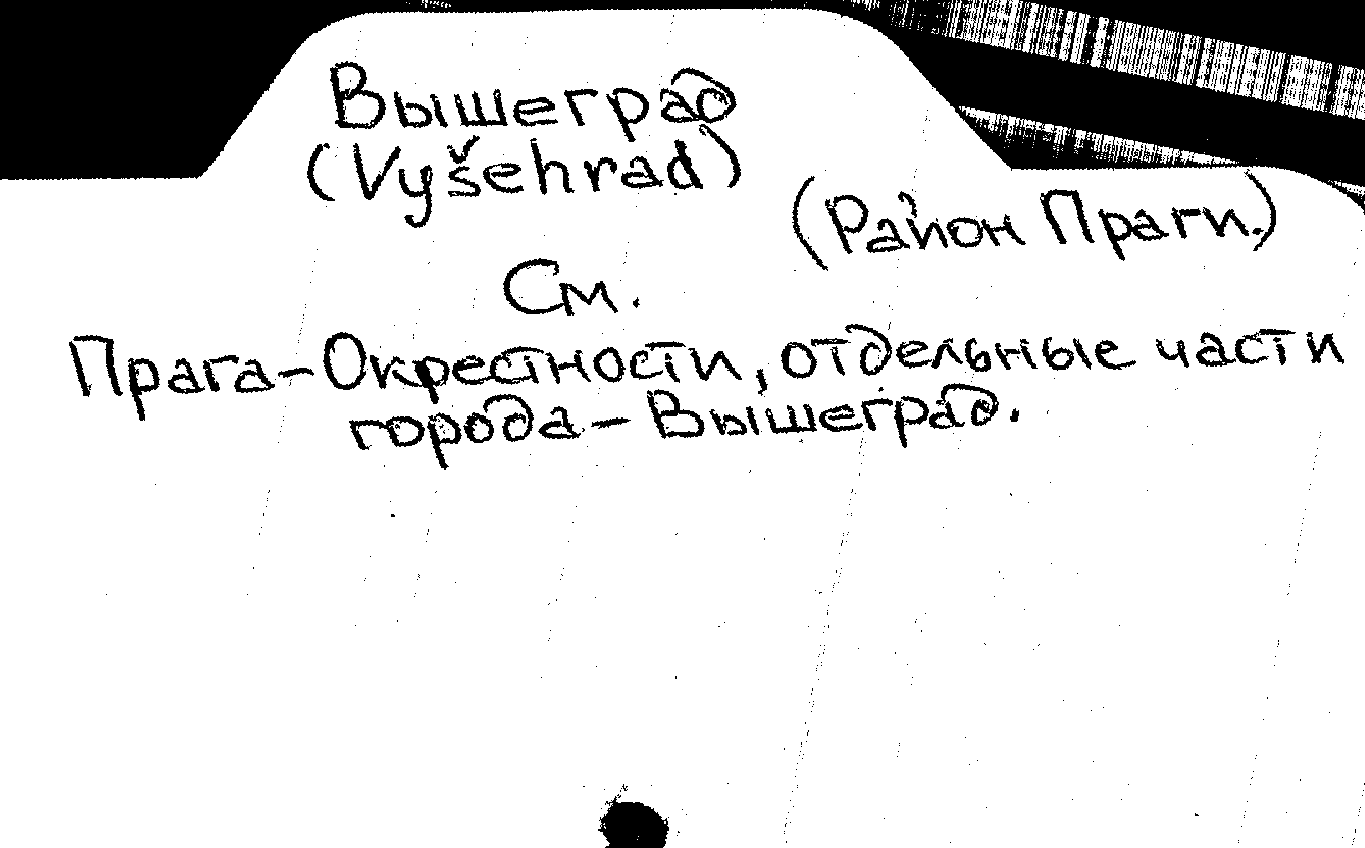 Вышеград
(Vyšehrad)
(Район Праги.)
См.
Прага-Окрестности, отдельные части
города-Вышеград.